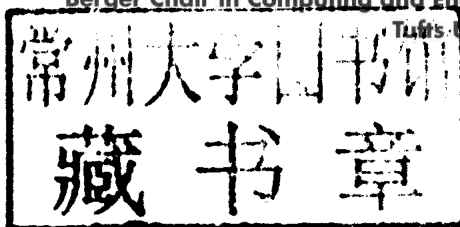 Berger Chair in Computing and
Tufts
常州大学图书馆
藏书章